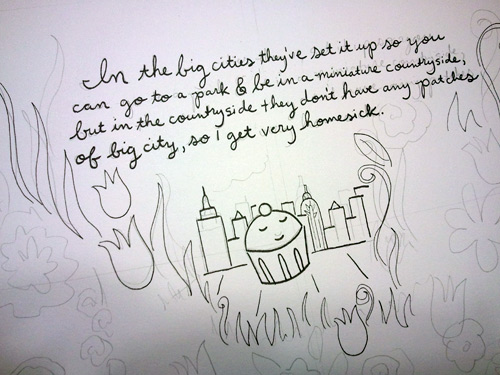 In the big cities they've set it up so you
can go to a park & be in a miniature countryside,
but in the countryside they don't have any patches
of big city, so I get very homesick.